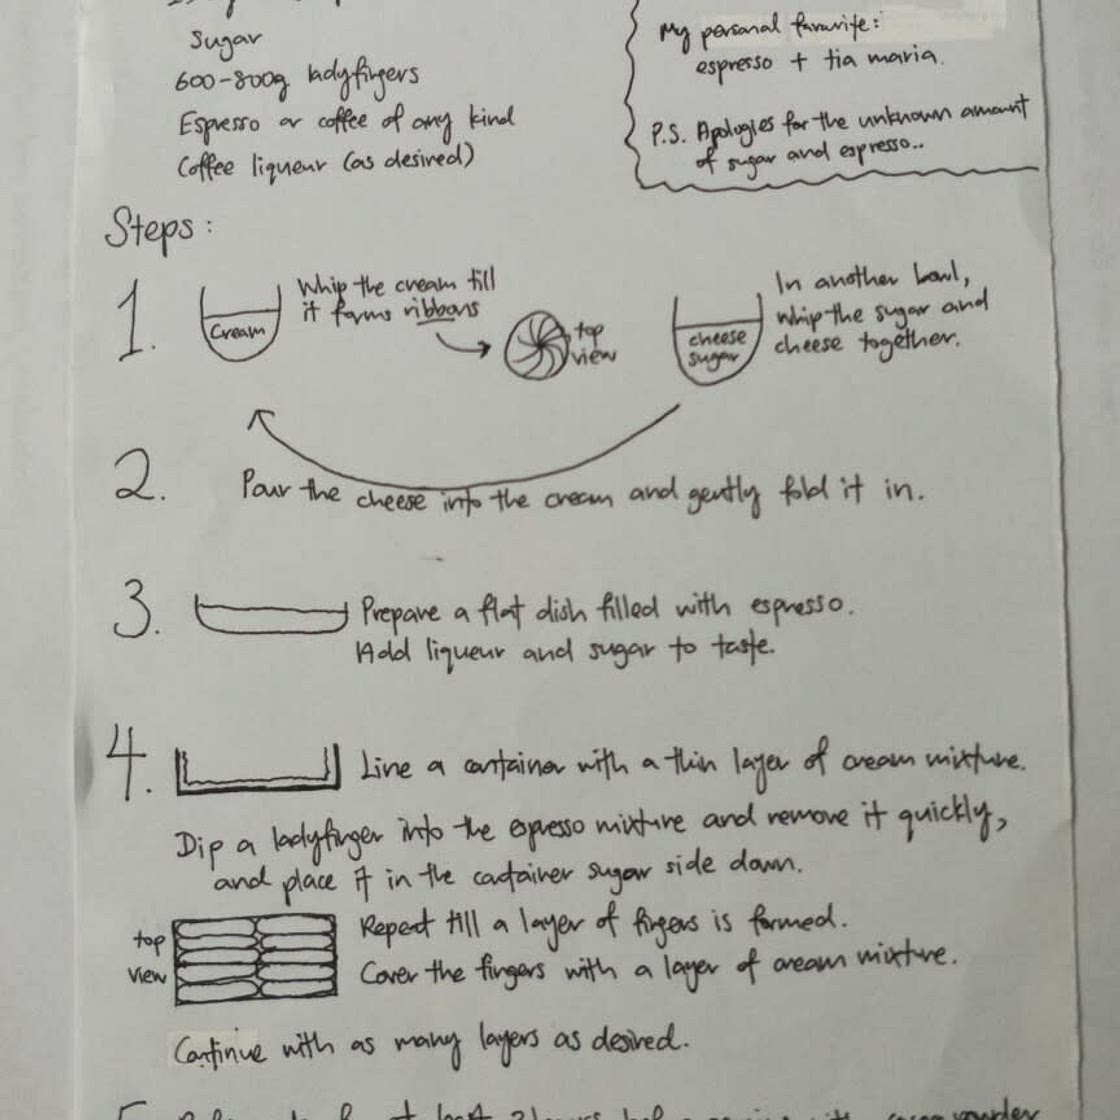 Sugar
600-800g ladyfingers
Espresso or coffee of any kind
Coffee liqueur (as desired)
My personal favourite:
espresso + tia maria.
P.S. Apologies for the unknown amount
of sugar and espresso..
Steps:
1.
Cream
Whip the cream till
it forms ribbons
top
view
cheese
sugar
In another bowl,
whip the sugar and
cheese together.
2. Pour the cheese into the cream and gently fold it in.
3. Prepare a flat dish filled with espresso.
Add liqueur and sugar to taste.
4. Line a container with a thin layer of cream mixture.
Dip a ladyfinger into the espresso mixture and remove it quickly,
and place it in the container sugar side down.
top
view
Repeat till a layer of fingers is formed.
Cover the fingers with a layer of cream mixture.
Continue with as many layers as desired.